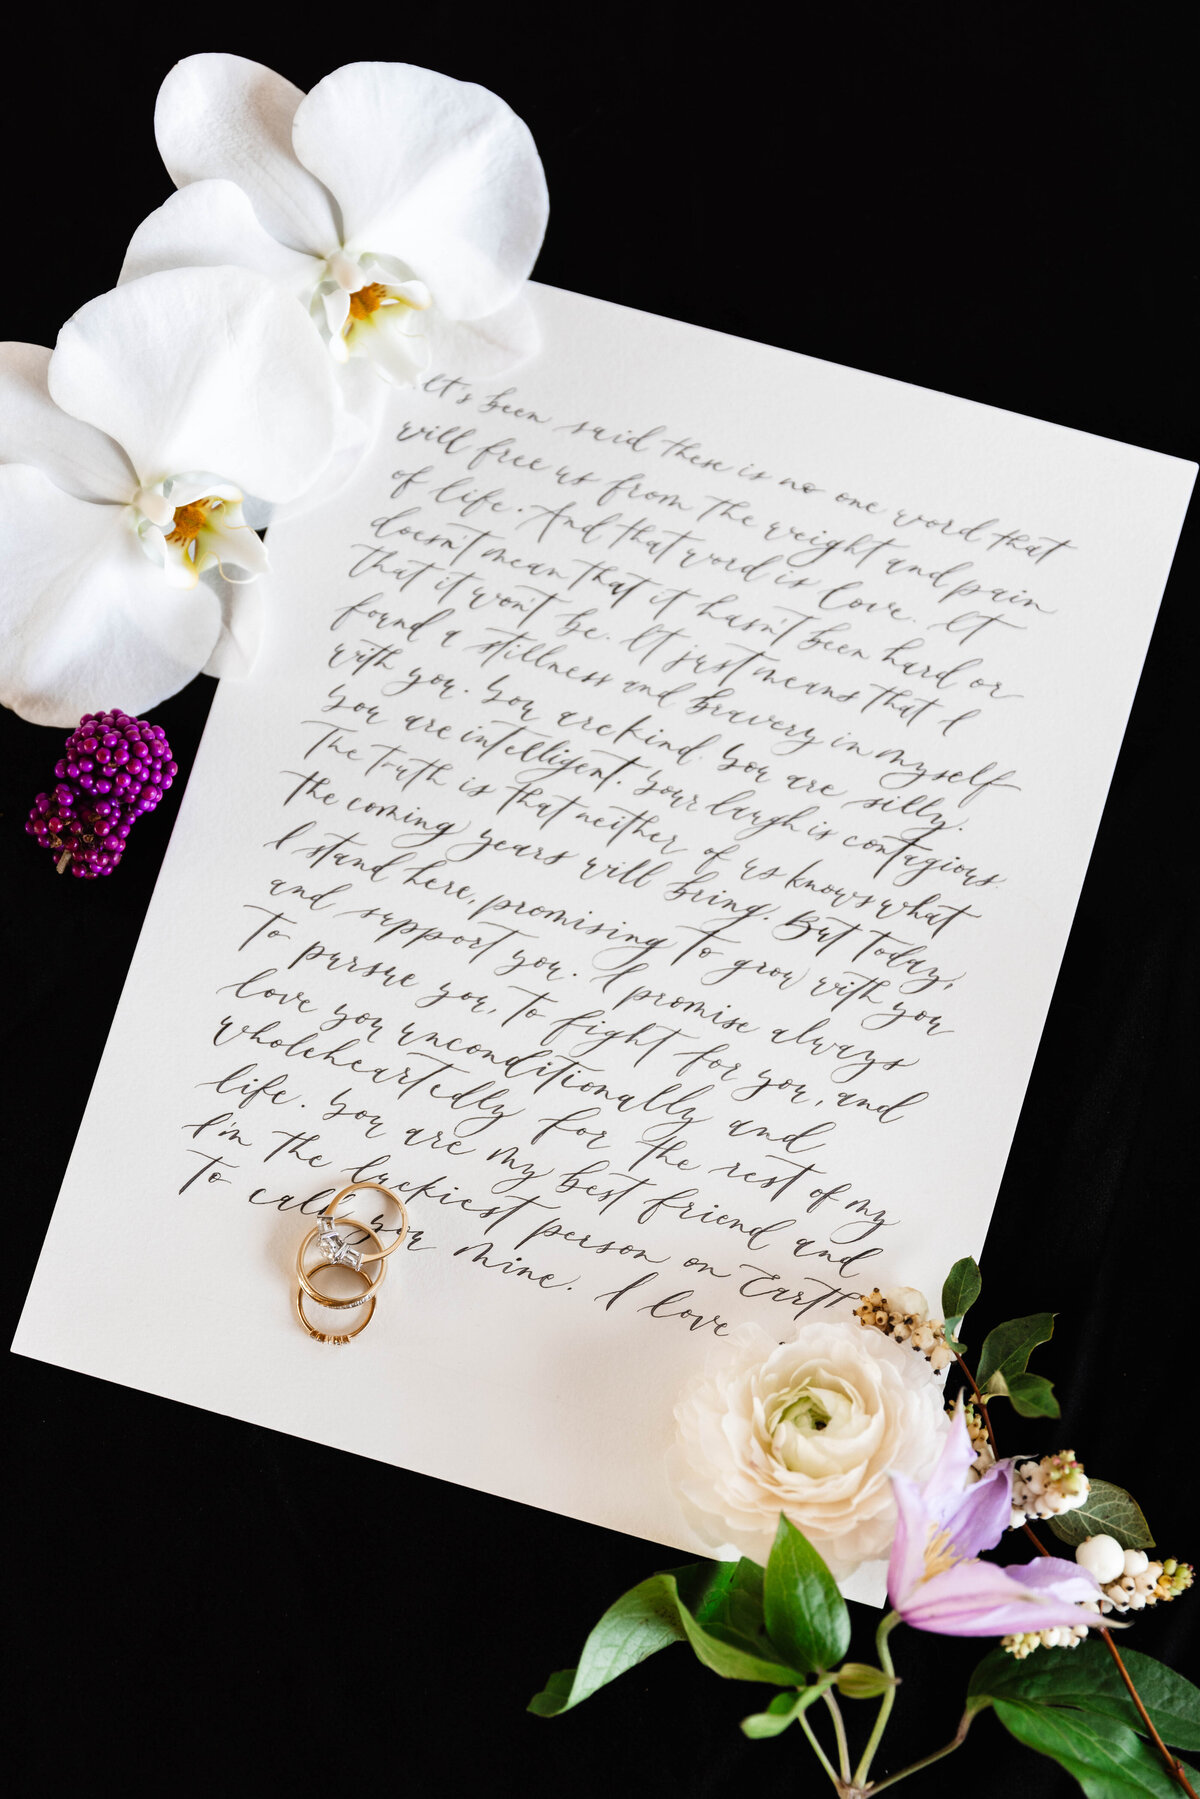 It's been said there is no one word that
will free us from the weight and pain
of life. And that word is love. It
doesn't mean that it hasn't been hard or
that it won't be. It just means that I
found a stillness and bravery in myself
with you. You are kind. You are silly.
You are intelligent. Your laugh is contagious.
The truth is that neither of us knows what
the coming years will bring. But today,
I stand here, promising to grow with you
and support you. I promise always
to pursue you, to fight for you, and
love you unconditionally and
wholeheartedly for the rest of my
life. You are my best friend and
I'm the luckiest person on Earth
to call you mine. I love